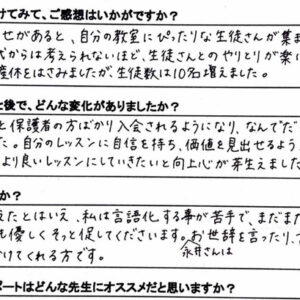 けてみて、ご感想はいかがですか？
せがあると、自分の教室にぴったりな生徒さんが集ま
からは考えられないほど、生徒さんとのやりとりが楽に
産休をはさみましたが、生徒数は10名増えました。
後で、どんな変化がありましたか？
と保護者の方ばかり入会されるようになり、なんで"だ
た。自分のレッスンに自信を持ち、価値を見出せるよう
より良いレッスンにしていきたいと向上心が芽生えまし
か？
えたとはいえ、私は言語化する事が苦手で、まだまた
も優しくそっと促してくださいます。お世辞を言ったり、
永井さんは
けてくれる方です。
ポートはどんな先生にオススメだと思いますか？